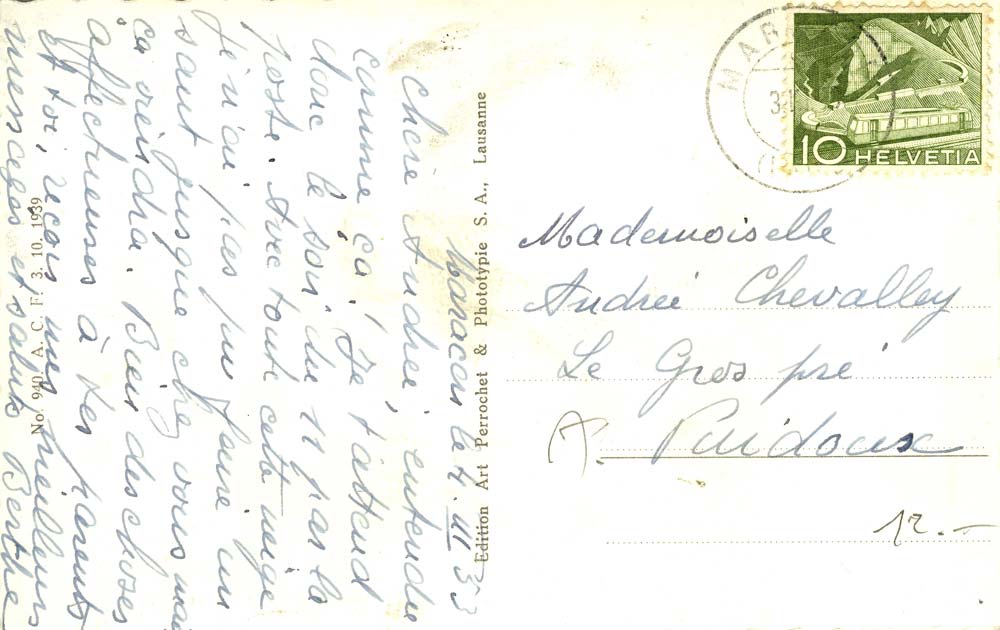 Maracon le 4. III 53
Chère Andrée, entendu
comme ça, je t'attend
donc le soir du 11 pas la
poste. Avec toute cette neige
je n'ai pas pu faire un
saut jusque chez vous mais
ça viendra. Bien des choses
affectueuses à tes parents
et toi, reçois mes meilleurs
messages et saluts Berthe
No. 940 A. C. F. 3. 10. 1939
Edition Art Perrochet & Phototypie S. A., Lausanne
MAR
10 HELVETIA
Mademoiselle
Andrée Chevalley
Le Gros pré
Puidoux
12.-